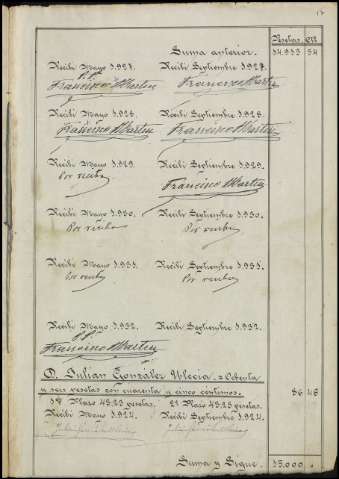 17
Pesetas Cts
Suma anterior. 34.933 54
Recibí Mayo 1.927. Recibí Septiembre 1.927.
P.P.
Francisco Martin Francisco Martin
Recibí Mayo 1.928. Recibí Septiembre 1.928.
Francisco Martin Francisco Martin
Recibí Mayo 1.929. Recibí Septiembre 1.929.
Por recibo Francisco Martin
Recibí Mayo 1.930. Recibí Septiembre 1.930.
Por recibo Por recibo
Recibí Mayo 1.931. Recibí Septiembre 1.931.
Por recibo Por recibo
Recibí Mayo 1.932. Recibí Septiembre 1.932.
P.P.
Francisco Martin
D. Julian González = Ochenta
y seis pesetas con cuarenta y cinco centimos. 86 46
1er Plazo 43,23 pesetas. 2º Plazo 43,23 pesetas.
Recibí Mayo 1.924. Recibí Septiembre 1.924.
Suma y Sigue. 35.000